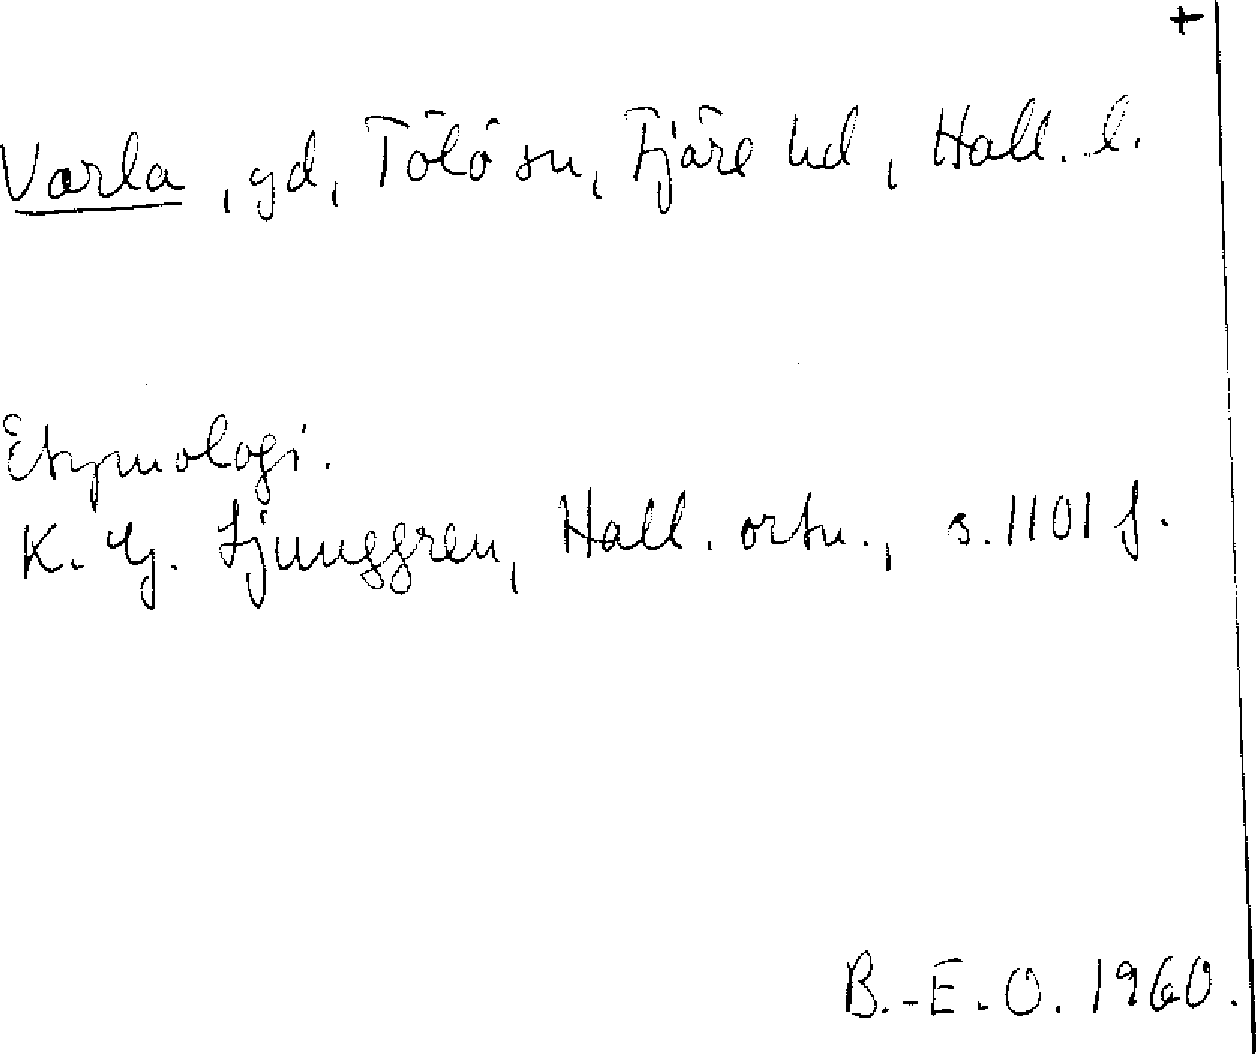 +
Varla, gd, Tölö sn, Fjäre hd, Hall. l.
Etymologi.
K. G. Ljunggren, Hall. ortn., s. 1101 f.
B.-E. O. 1960.